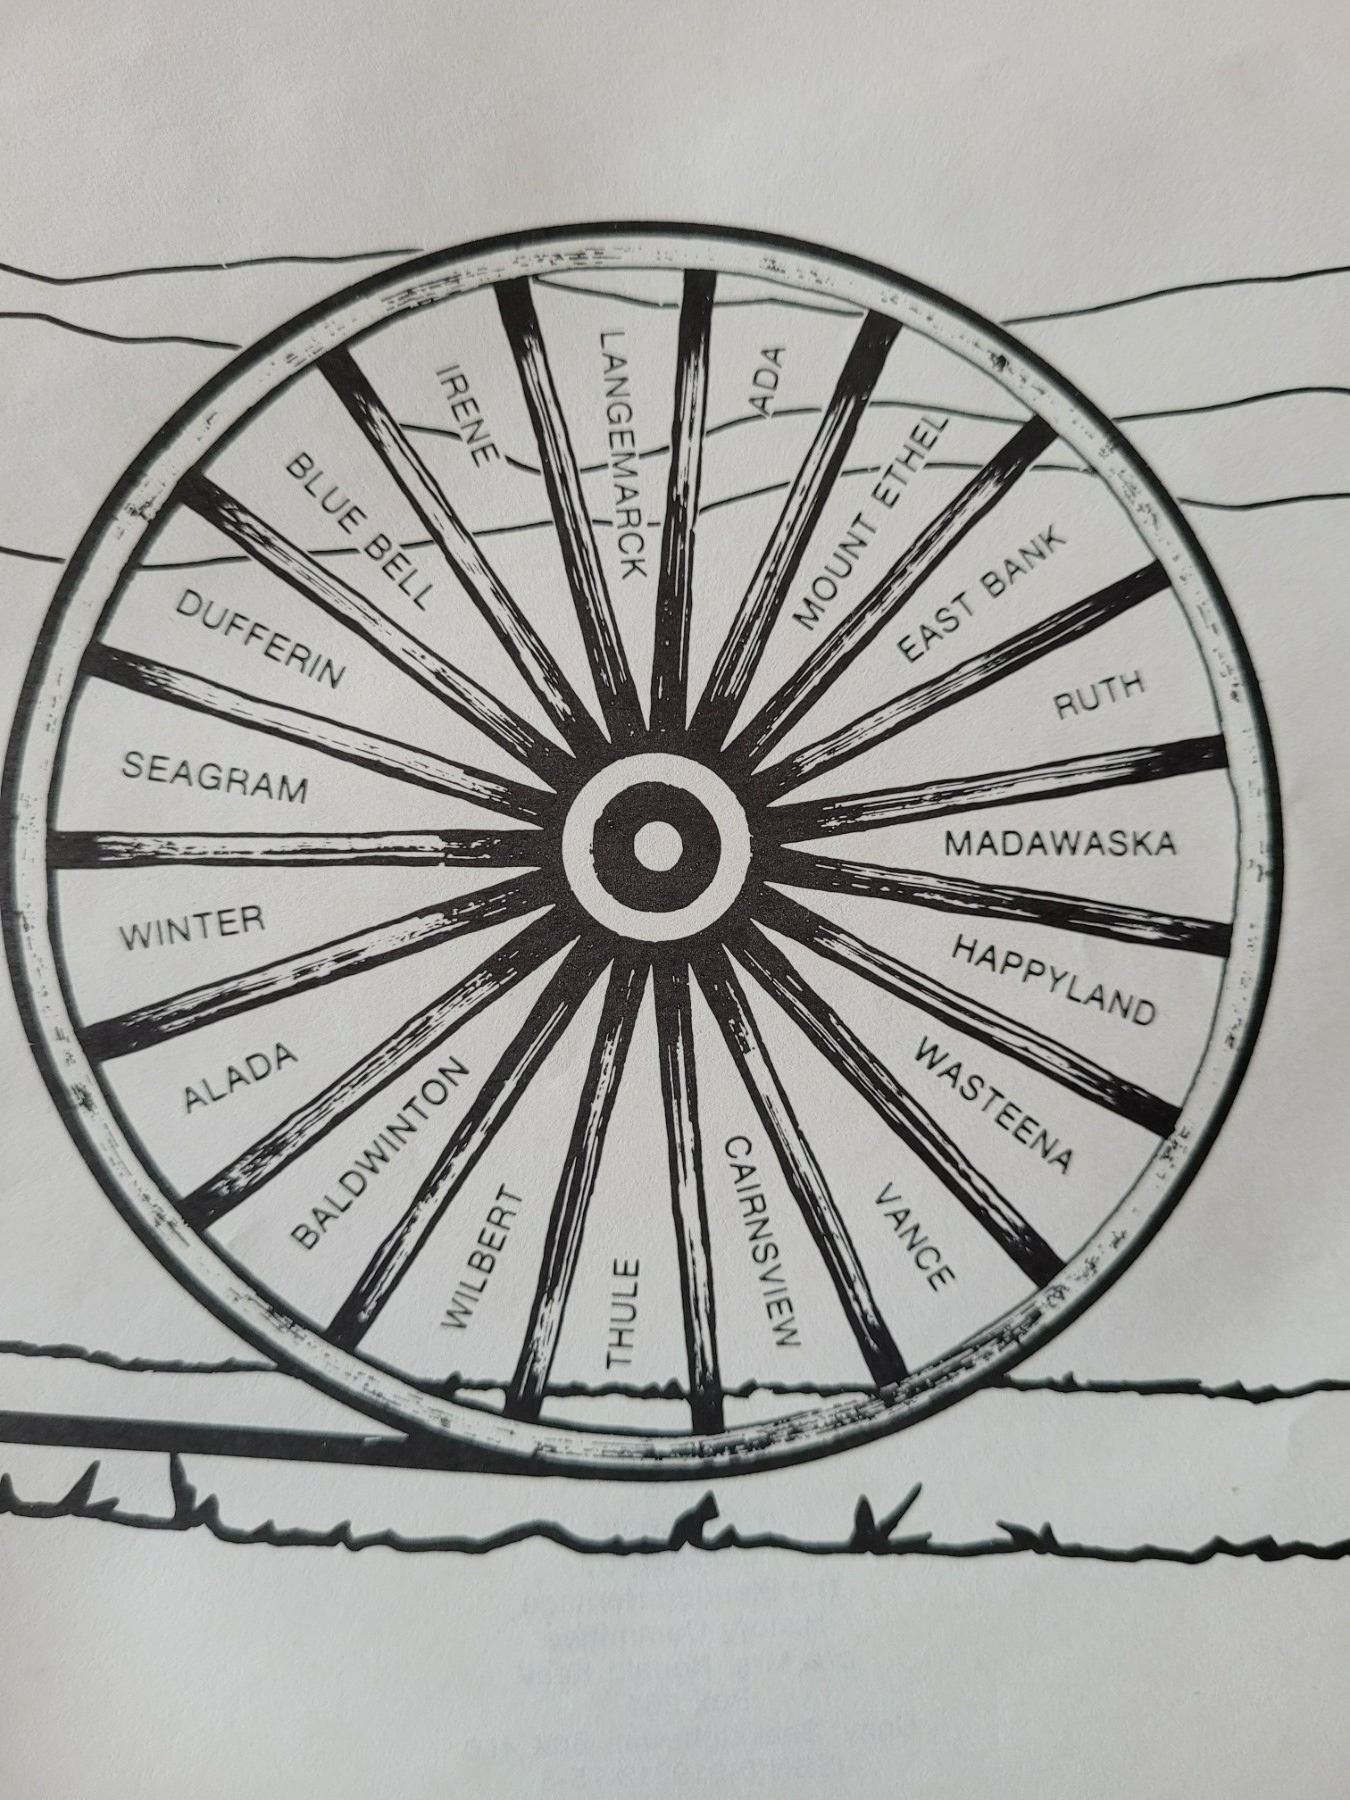 LANGEMARCK
ADA
MOUNT ETHEL
EAST BANK
RUTH
MADAWASKA
HAPPYLAND
WASTEENA
VANCE
CAIRNSVIEW
THULE
WILBERT
BALDWINTON
ALADA
WINTER
SEAGRAM
DUFFERIN
BLUE BELL
IRENE